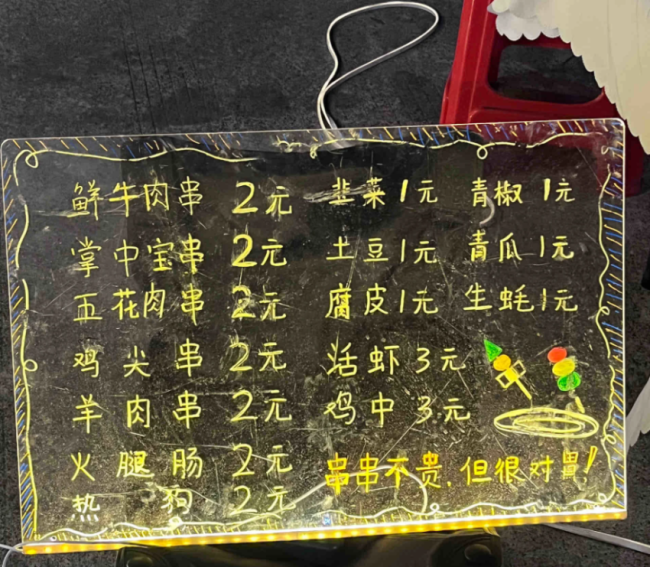 鲜牛肉串 2元 韭菜 1元 青椒 1元
掌中宝串 2元 土豆 1元 青瓜 1元
五花肉串 2元 腐皮 1元 生蚝 1元
鸡尖串 2元 活虾 3元
羊肉串 2元 鸡中 3元
火腿肠 2元 串串不贵,但很对胃!
热狗 2元